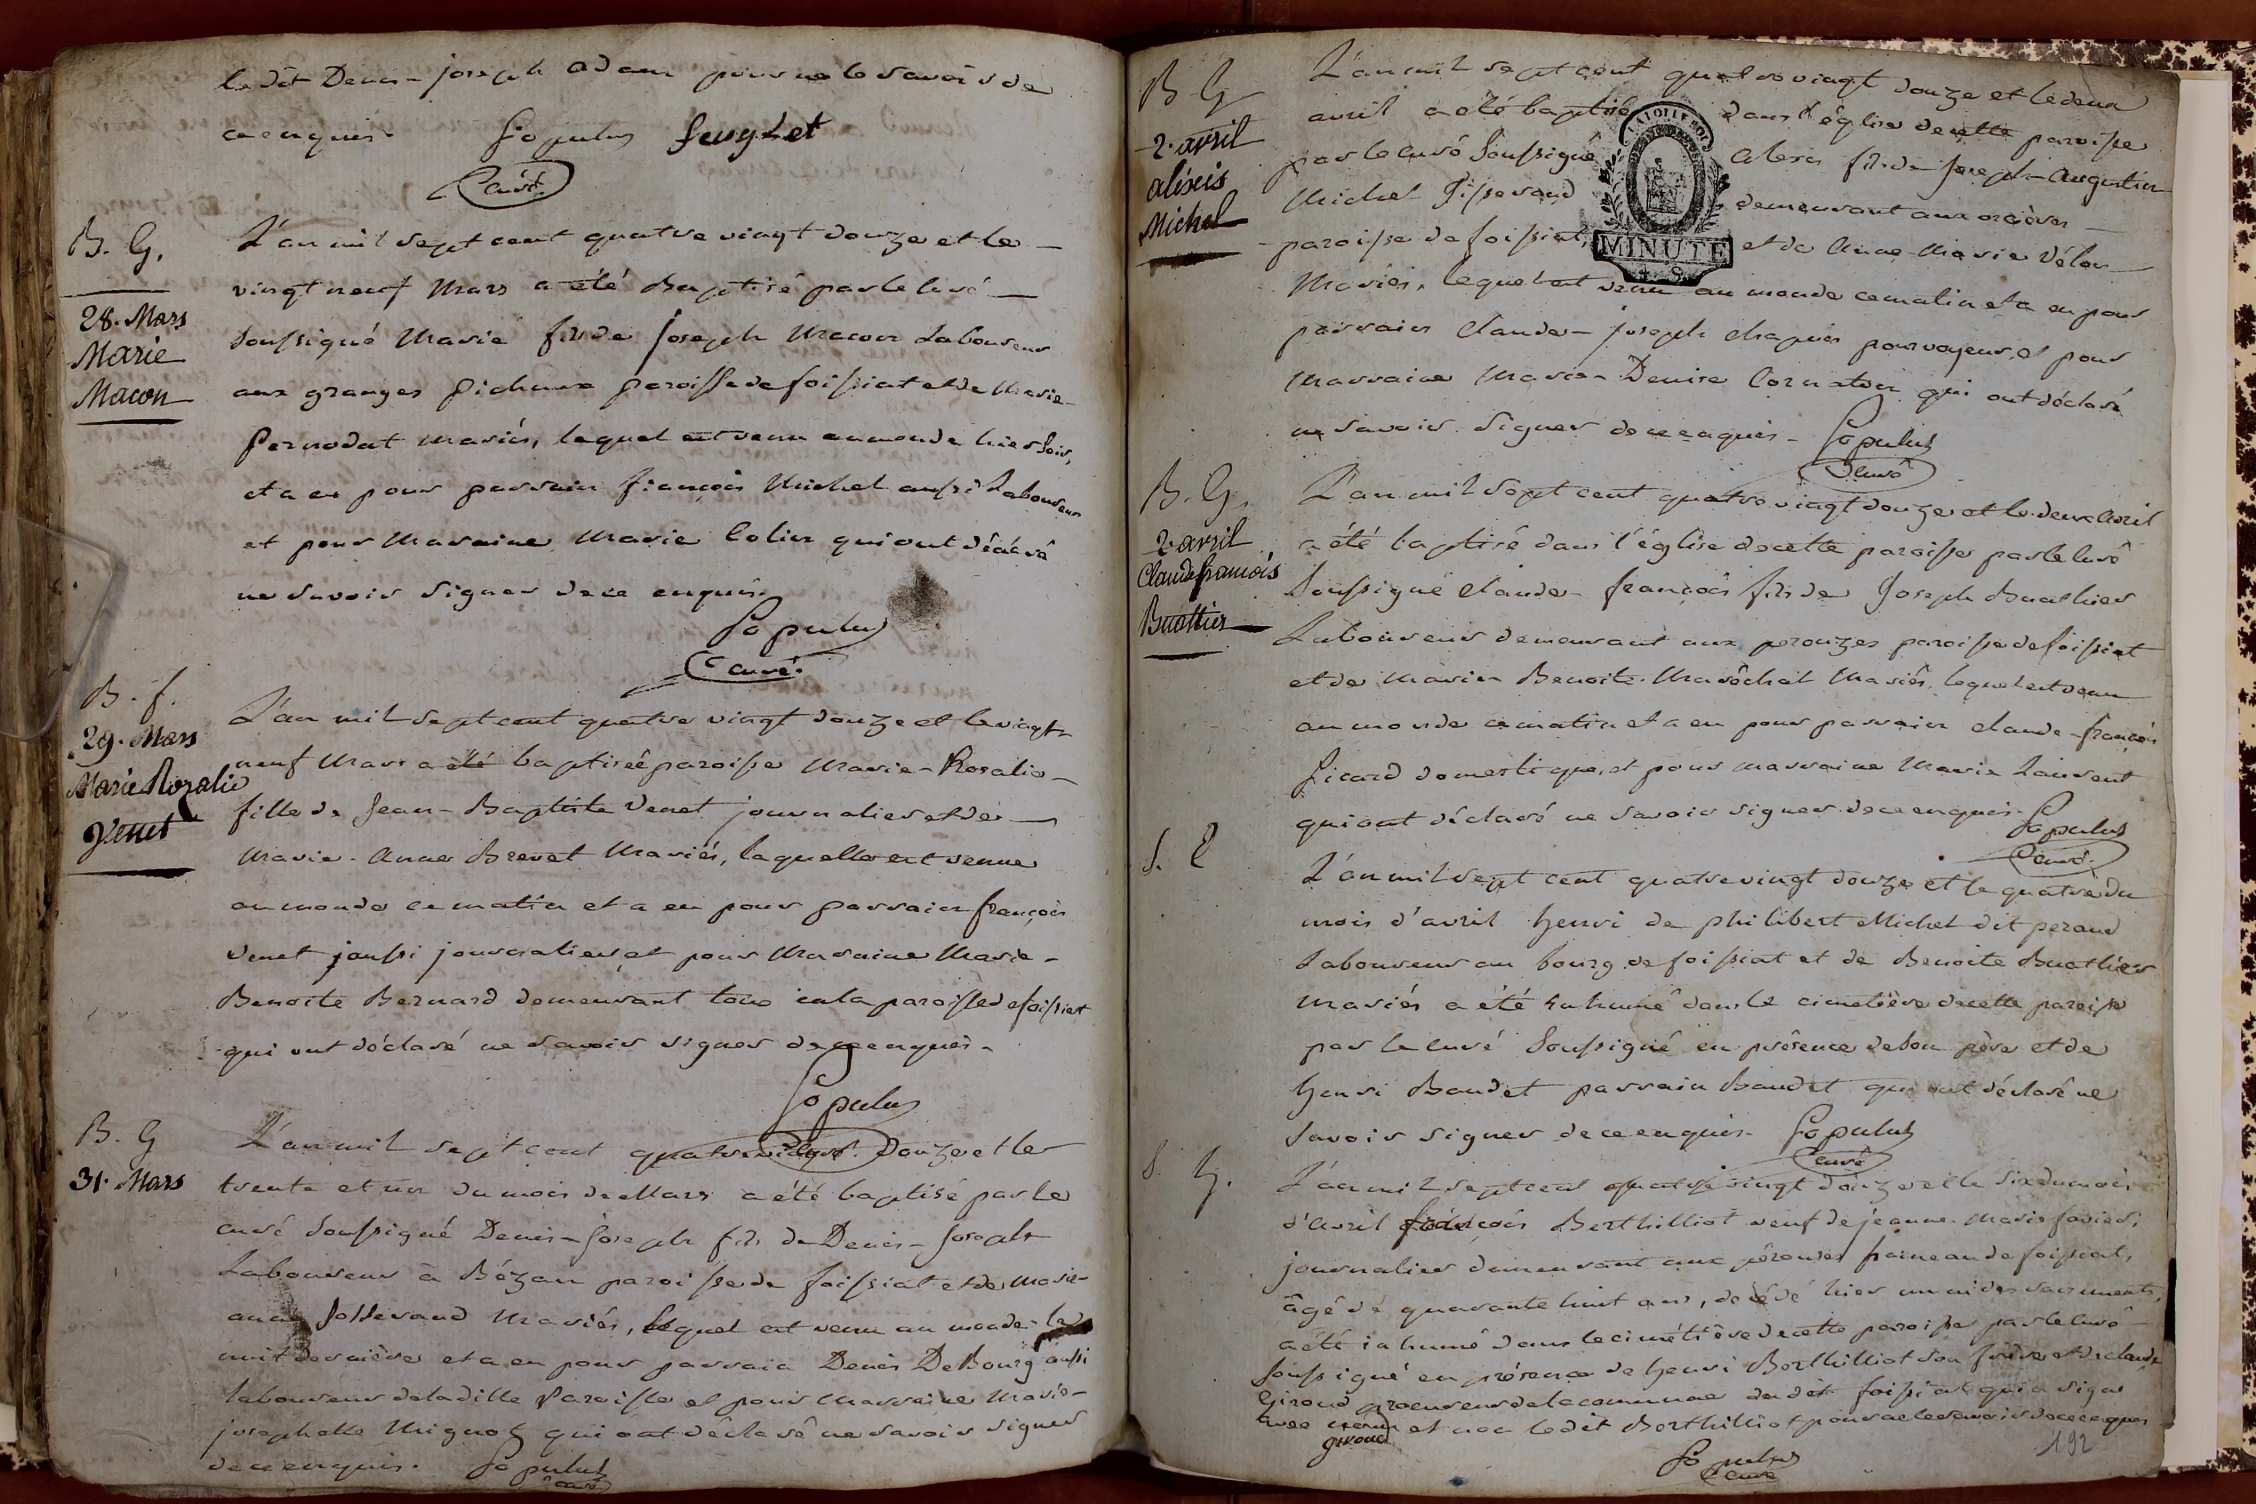 le dit Denis-joseph adam pour ne le savoir de
ce enquis. Populus feuglet
curé
B. G.
28. Mars
Marie
Macon
L'an mil sept cent quatre vingt douze et le
vingt neuf Mars a été Baptisé par le curé
soussigné Marie fils de joseph Macon Laboureur
aux granges paroisse de foissiat et de Marie
Pernodat mariés, lequel est venu au monde hier soir,
et a eu pour parrain françois Michel aussi Laboureur
et pour Maraine Marie Colin qui ont déclaré
ne savoir signer de ce enquis.
Populus
curé.
B. f.
29. Mars
Marie Rozalie
Venet
L'an mil sept cent quatre vingt douze et le vingt
neuf Mars a été baptisée paroisse Marie-Rosalie
fille de Jean-Baptiste Venet journalier et de
Marie-Anne Brevet Mariés, laquelle est venue
au monde ce matin et a eu pour parrain françois
Venet aussi journalier et pour Maraine Marie-
Benoite Bernard demeurant tous en la paroisse de foissiat
qui ont déclaré ne savoir signer de ce enquis.
Populus
curé
B. G
31. Mars
L'an mil sept cent quatre vingt douze et le
trente et un du mois de Mars a été baptisé par le
curé soussigné Denis-Joseph fils de Denis-Joseph
Laboureur à Bézan paroisse de foissiat et de Marie-
anne Josserand Mariés, lequel est venu au monde la
nuit dernière et a eu pour parrain Denis DeBourg aussi
laboureur de la dille Paroisse et pour Marraine Marie-
josephette Mignot qui ont déclaré ne savoir signer
de ce enquis. Populus
curé
B G
2. avril
aléxis
Michel
L'an mil sept cent quatre vingt douze et le deux
avril a été baptisé dans l'église de cette paroisse
par le curé soussigné alexis fils de Joseph-Augustin
Michel Tisserand demeurant aux orcières
paroisse de foissiat, et de Anne-Marie Vélon
Mariés, lequel est venu au monde ce matin et a eu pour
parrain Claude-joseph chapuis pourvoyeur, et pour
Marraine Marie-Denise Cornaton qui ont déclaré
ne savoir signer de ce enquis. Populus
curé
MINUTE
4. S.
B. G.
2. avril
Claude françois
Buattier
L'an mil sept cent quatre vingt douze et le deux avril
a été baptisé dans l'église de cette paroisse par le curé
soussigné Claude-françois fils de Joseph Buathier
Laboureur demeurant aux perouzes paroisse de foissiat
et de Marie-Benoite Maréchal Mariés, lequel est venu
au monde ce matin et a eu pour parrain claude-françois
Picard domestique, et pour marraine Marie Laurent
qui ont déclaré ne savoir signer de ce enquis. Populus
curé.
S. E
L'an mil sept cent quatre vingt douze et le quatre du
mois d'avril henri de philibert Michel dit perand
Laboureur au bourg de foissiat et de Benoite Buathier
Mariés a été inhumé dans le cimetière de cette paroisse
par le curé soussigné en présence de son père et de
henri Baudet parrain baudet qui ont déclaré ne
savoir signer de ce enquis. Populus
curé
S. G.
L'an mil sept cent quatre vingt douze et le six du mois
d'avril françois Berthilliot veuf de jeanne-Marie
journalier demeurant aux pérouses hameau de foissiat,
âgé de quarante huit ans, décédé hier muni des sacrements,
a été inhumé dans le cimétière de cette paroisse par le curé
soussigné en présence de henri Berthilliot son frère et de claude
Giroud procureur de la commune du dit foissiat qui a signé
avec nous et non le dit Berthilliot pour ne le savoir de ce enquis
giroud Populus
curé
192